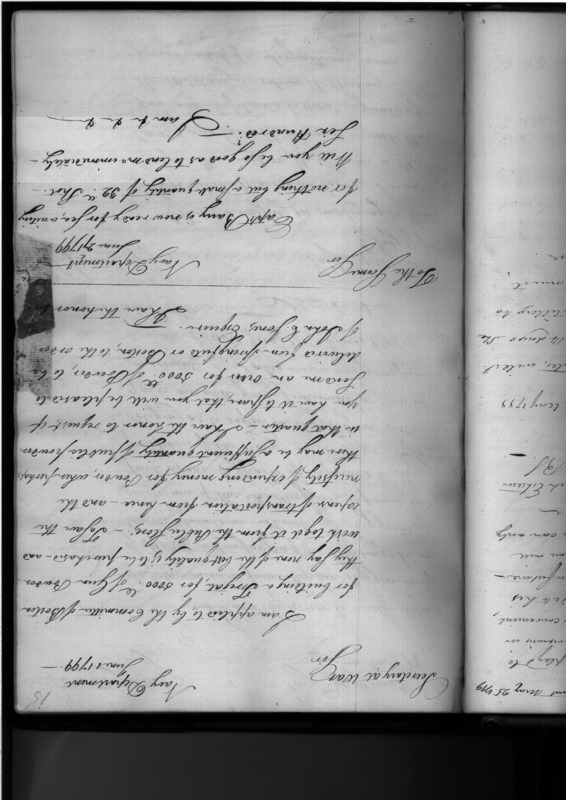 15
Navy Department
June 1 1799 —
Secretary at War
Sir
I am applied to by the Committee of Boston
for building a Frigate, for 5000 lb of Gun Powder
they say none of the best quality is to be purchased - and
wish to get it from the Public Stores. - To save the
expence of transportation from hence - and the
necessity of expending money for Powder, when perhaps
there may be a sufficient quantity of public powder
in that quarter - I have the honor to request, if
you have it to spare, that you will be pleased to
send me an order for 5000 lb of Powder, to be
delivered from Springfield or Boston, to the order
of John C. Jones Esquire.
I have the honor
Navy Department
June 1799
To the Same
Sir
Capt Barry is now ready for sea, waiting
for nothing but a small quantity of 32 lb Shot. -
Will you be so good as to lend me immediately -
Six Hundred? I am &c &c &c